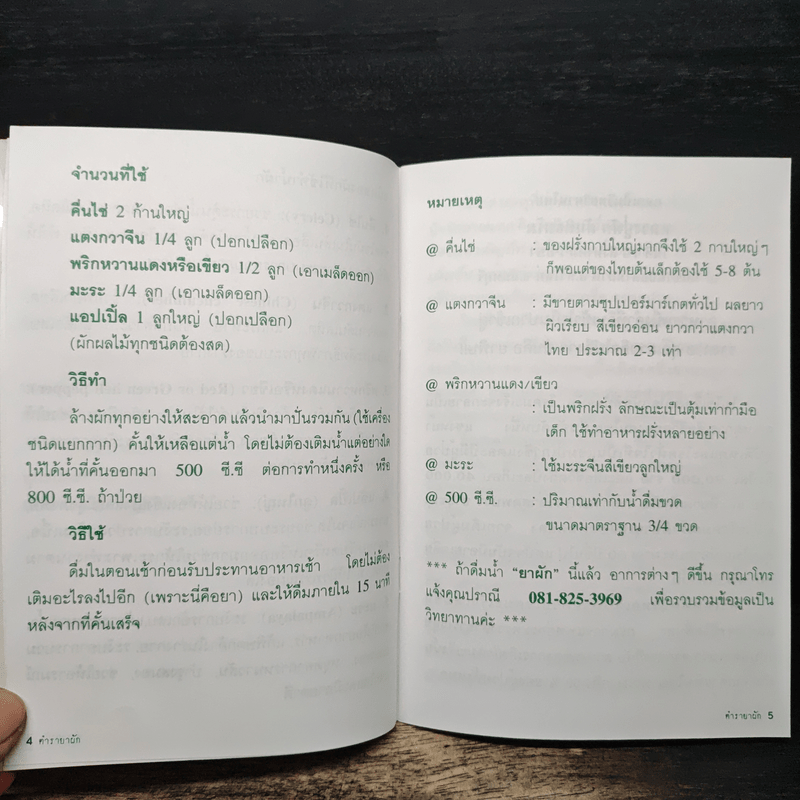 จำนวนที่ใช้
คื่นไช่ 2 ก้านใหญ่
แตงกวาจีน 1/4 ลูก (ปอกเปลือก)
พริกหวานแดงหรือเขียว 1/2 ลูก (เอาเมล็ดออก)
มะระ 1/4 ลูก (เอาเมล็ดออก)
แอปเปิ้ล 1 ลูกใหญ่ (ปอกเปลือก)
(ผักผลไม้ทุกชนิดต้องสด)
วิธีทำ
ล้างผักทุกอย่างให้สะอาด แล้วนำมาปั่นรวมกัน (ใช้เครื่อง
ชนิดแยกกาก) คั้นให้เหลือแต่น้ำ โดยไม่ต้องเติมน้ำแต่อย่างใด
ให้ได้น้ำที่คั้นออกมา 500 ซี.ซี ต่อการทำหนึ่งครั้ง หรือ
800 ซี.ซี. ถ้าป่วย
วิธีใช้
ดื่มในตอนเช้าก่อนรับประทานอาหารเช้า โดยไม่ต้อง
เติมอะไรลงไปอีก (เพราะนี่คือยา) และให้ดื่มภายใน 15 นาที
หลังจากที่คั้นเสร็จ
4 ตำรายาผัก
หมายเหตุ
@ คื่นไช่ : ของฝรั่งกาบใหญ่มากจึงใช้ 2 กาบใหญ่ๆ
ก็พอแต่ของไทยต้นเล็กต้องใช้ 5-8 ต้น
@ แตงกวาจีน : มีขายตามซุปเปอร์มาร์เกตทั่วไป ผลยาว
ผิวเรียบ สีเขียวอ่อน ยาวกว่าแตงกวา
ไทย ประมาณ 2-3 เท่า
@ พริกหวานแดง/เขียว
: เป็นพริกฝรั่ง ลักษณะเป็นตุ้มเท่ากำมือ
เด็ก ใช้ทำอาหารฝรั่งหลายอย่าง
@ มะระ : ใช้มะระจีนสีเขียวลูกใหญ่
@ 500 ซี.ซี. : ปริมาณเท่ากับน้ำดื่มขวด
ขนาดมาตราฐาน 3/4 ขวด
*** ถ้าดื่มน้ำ “ยาผัก” นี้แล้ว อาการต่างๆ ดีขึ้น กรุณาโทร
แจ้งคุณปราณี 081-825-3969 เพื่อรวบรวมข้อมูลเป็น
วิทยาทานค่ะ ***
ตำรายาผัก 5